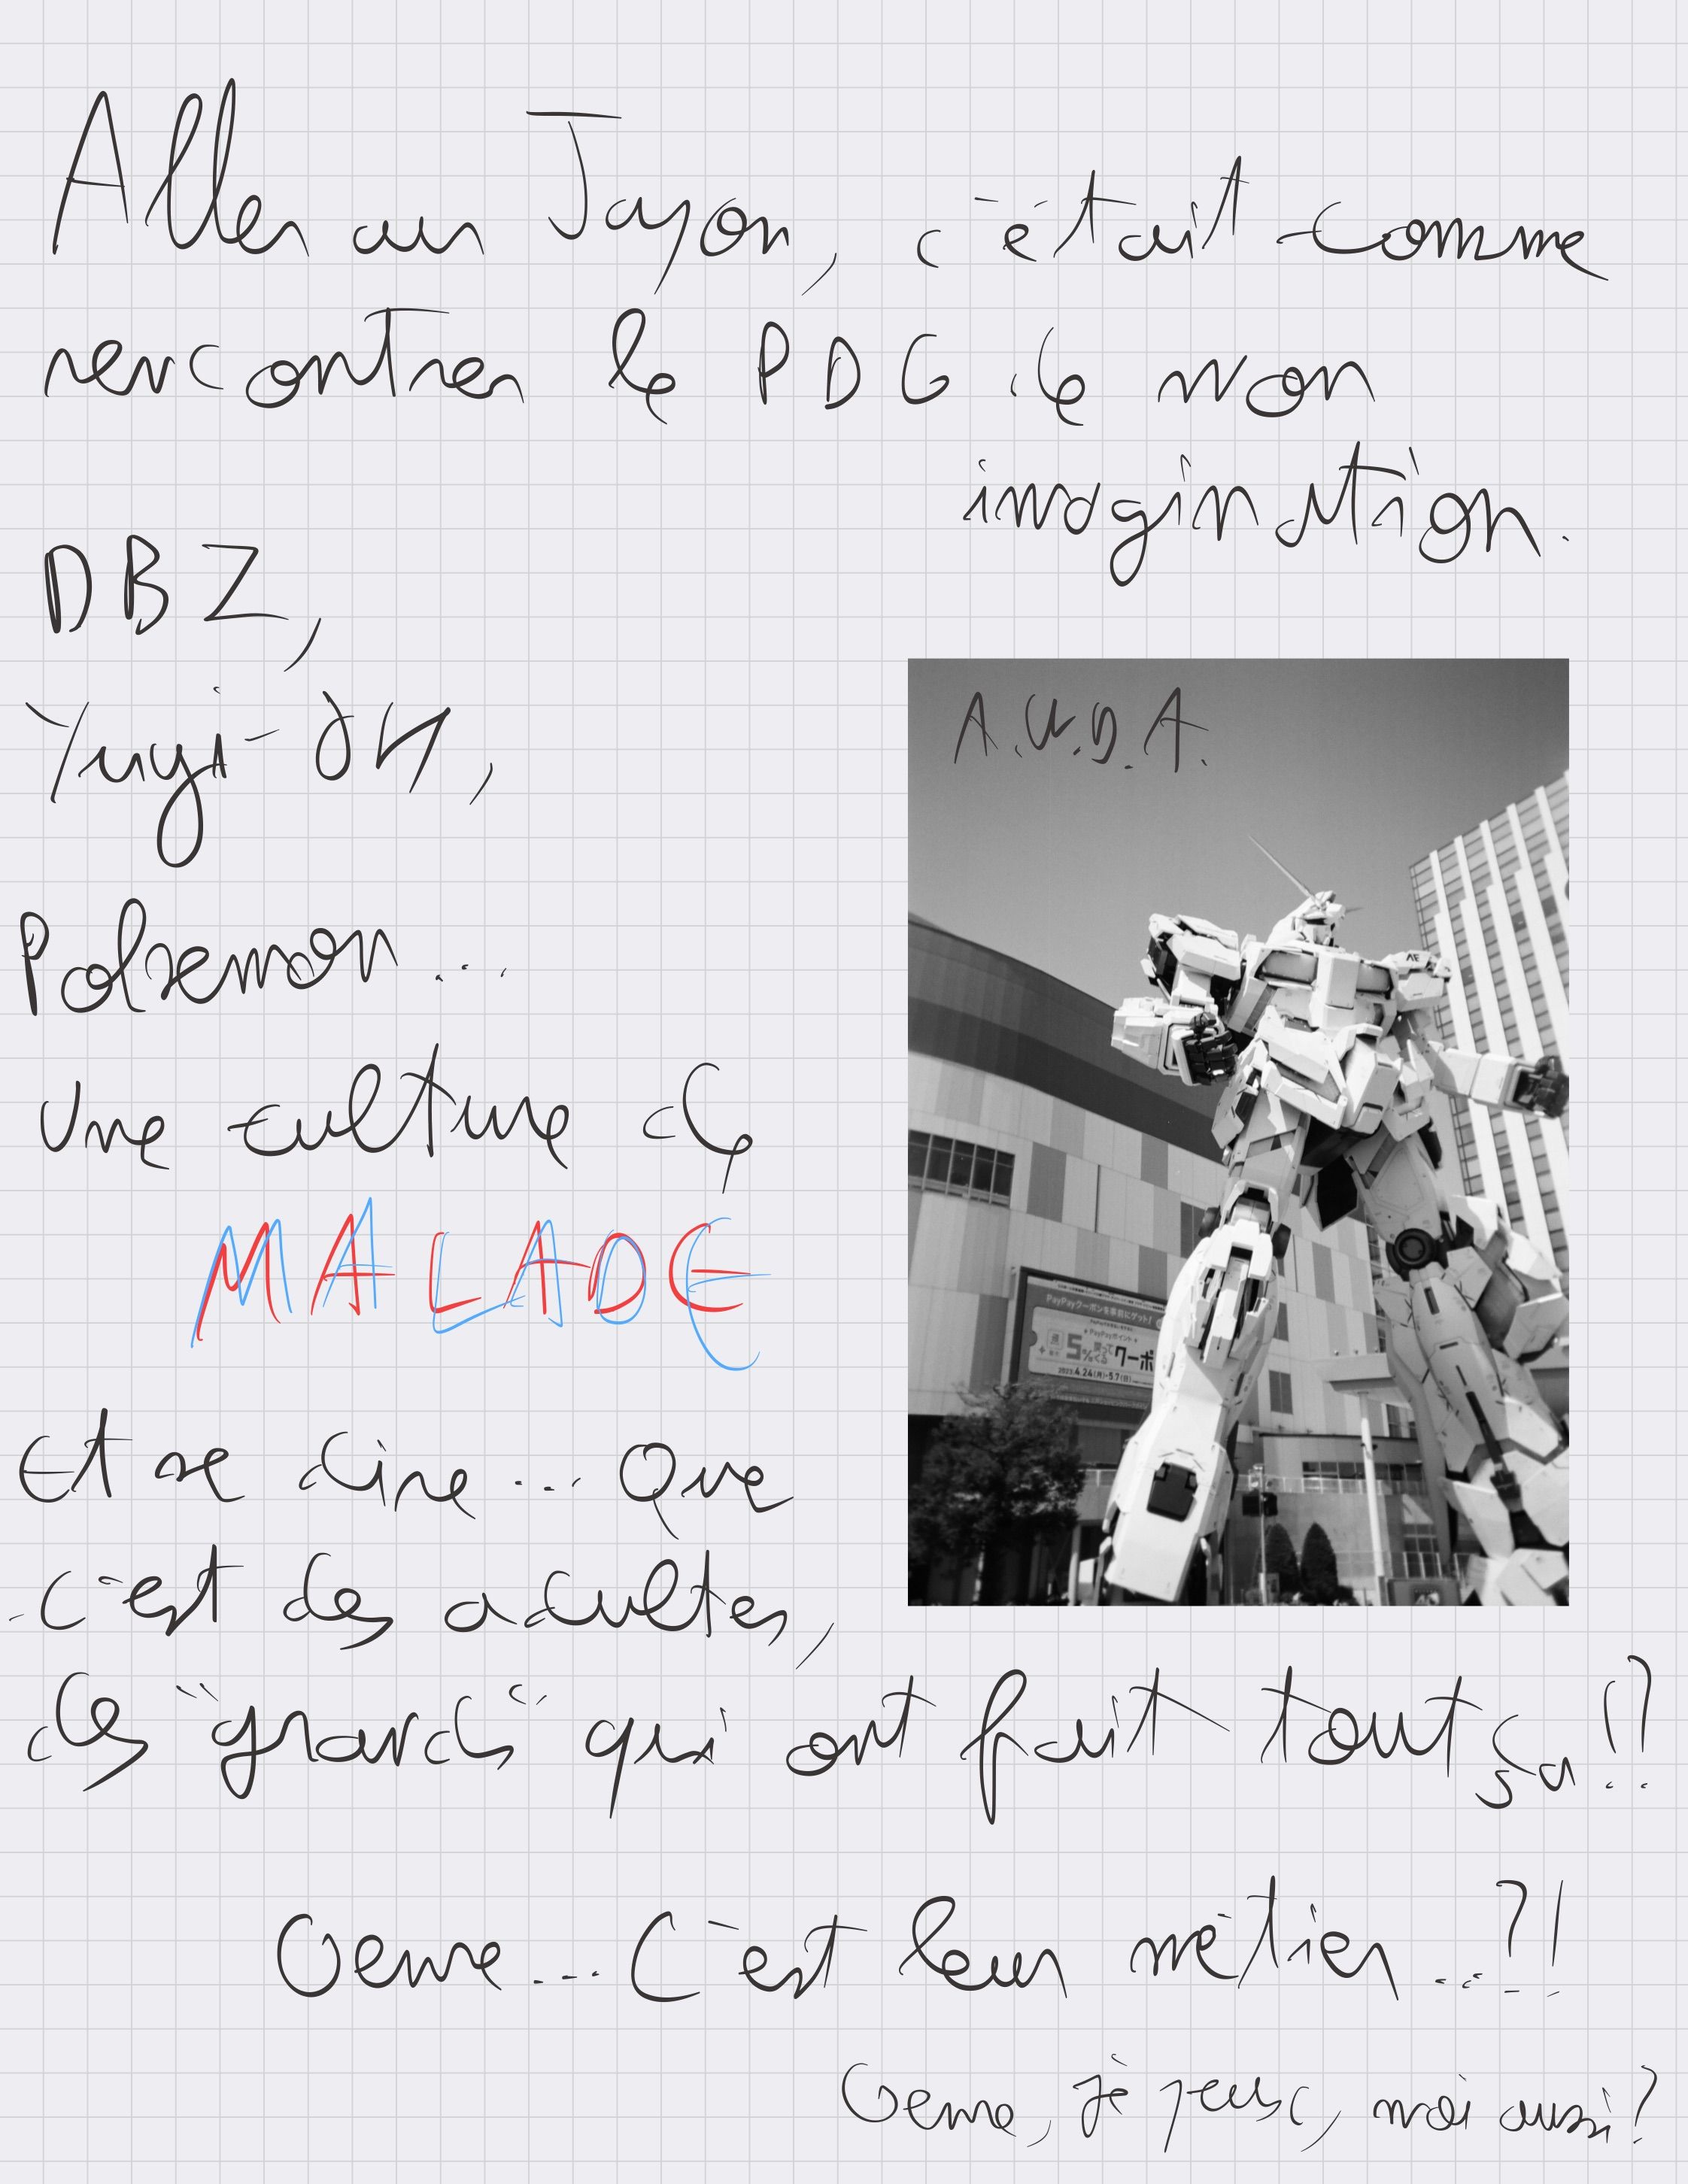 Aller au Japon, c'était comme
rencontrer le PDG de mon
imagination.
DBZ,
Yugi-OH,
Pokemon...
Une culture de
MALADE
Et se dire... Que
c'est des adultes,
des "grands" qui ont fait tout ça !?
Genre... C'est leur métier...?!
Genre, je peux, moi aussi?
A.W.D.A.
AE
PayPayクーポンを事前にゲット!
PayPayポイント
5%
クーポ
2023.4.24(月)-5.7(日)